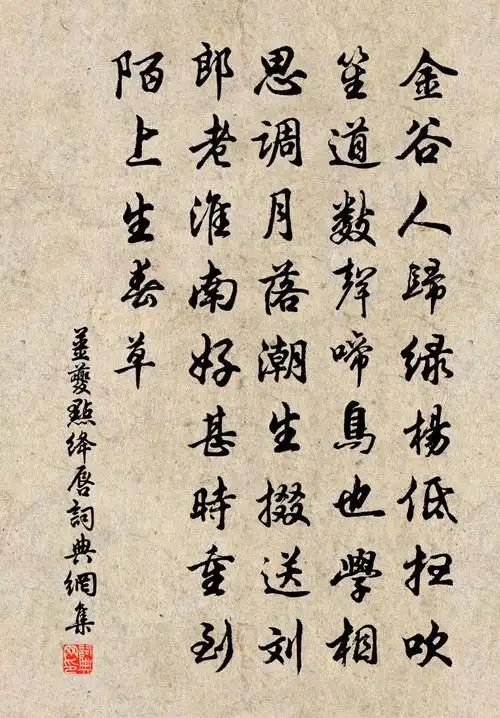 金谷人歸绿楊低扫吹
笙道数聲啼鳥也學相
思調月落潮生掇送刘
郎老淮南好甚時重到
陌上生春草
姜夔點绛唇詞典網集
詞典网印